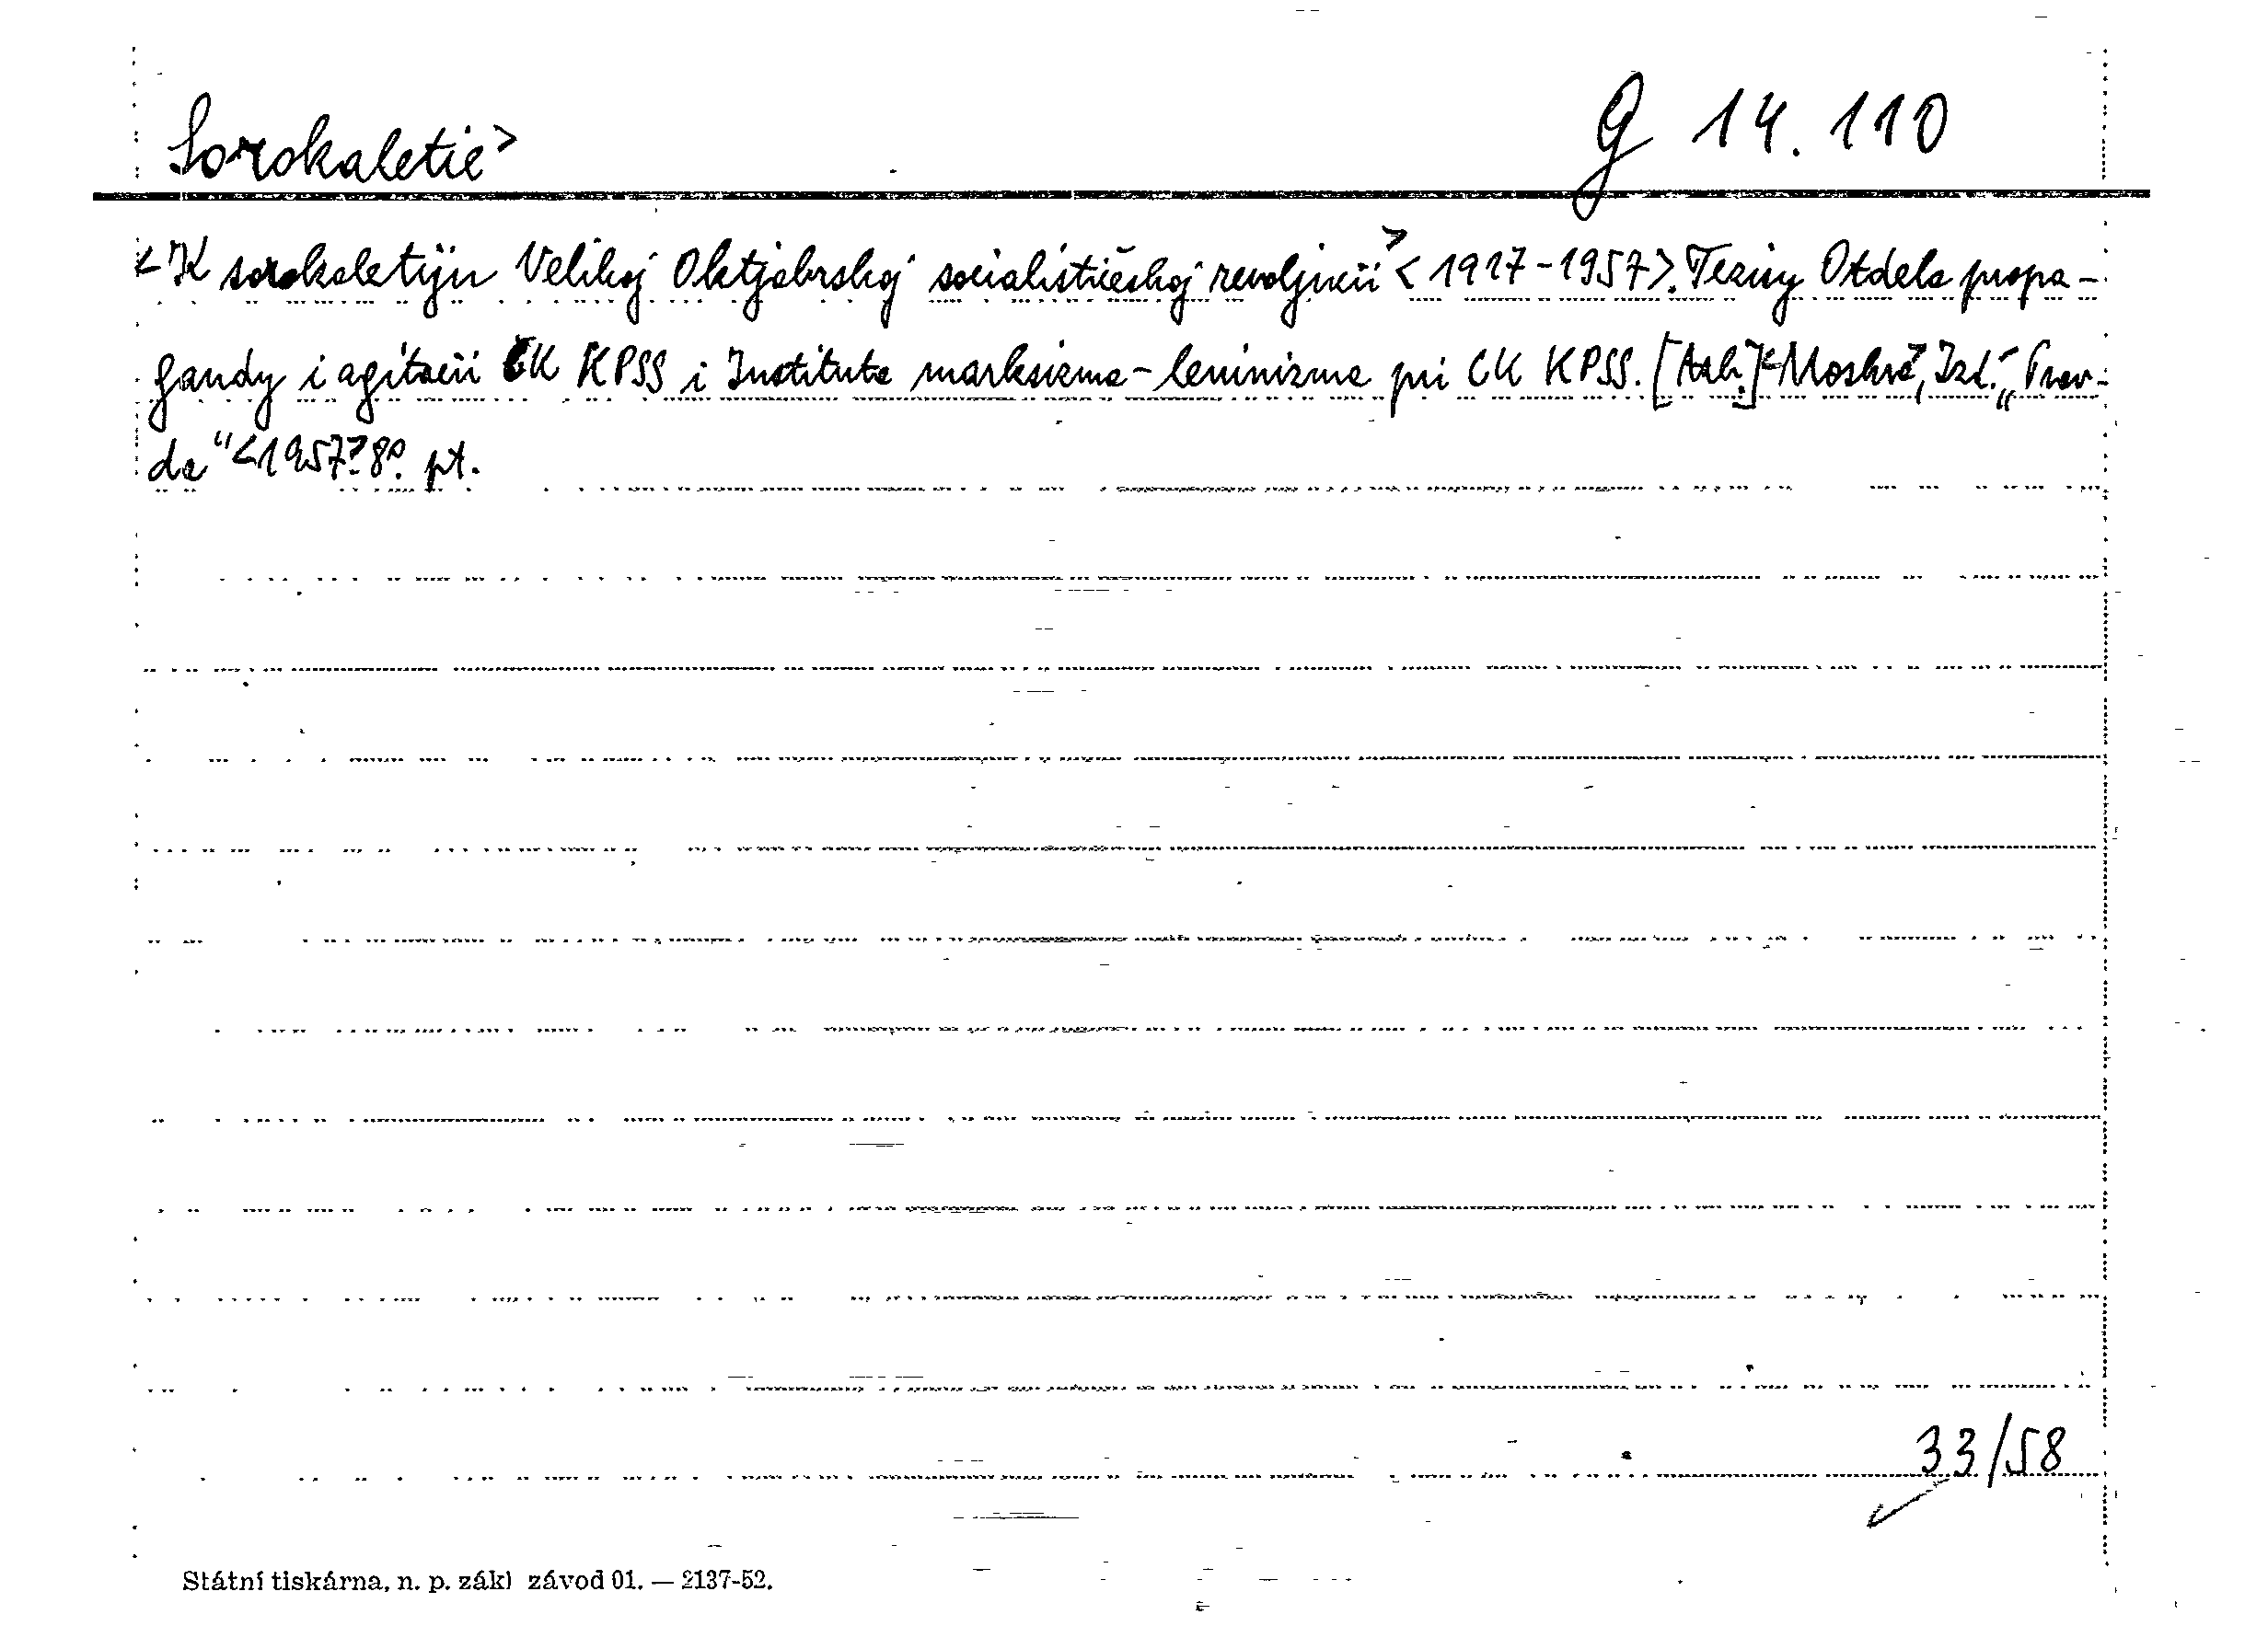 Sorokaletie>
G 14.110
<K sorokaletiju Velikoj Oktjabrskoj socialističeskoj revoljucii> <1917-1957>. Tezisy Otdela propa-
gandy i agitacii CK KPSS i Instituta marksizma-leninizma pri CK KPSS. [Azb.] <Moskva>, Izd. „Prav-
da" <1957>. 8°. pt.
33/58
Státní tiskárna, n. p. zákl závod 01. — 2137-52.